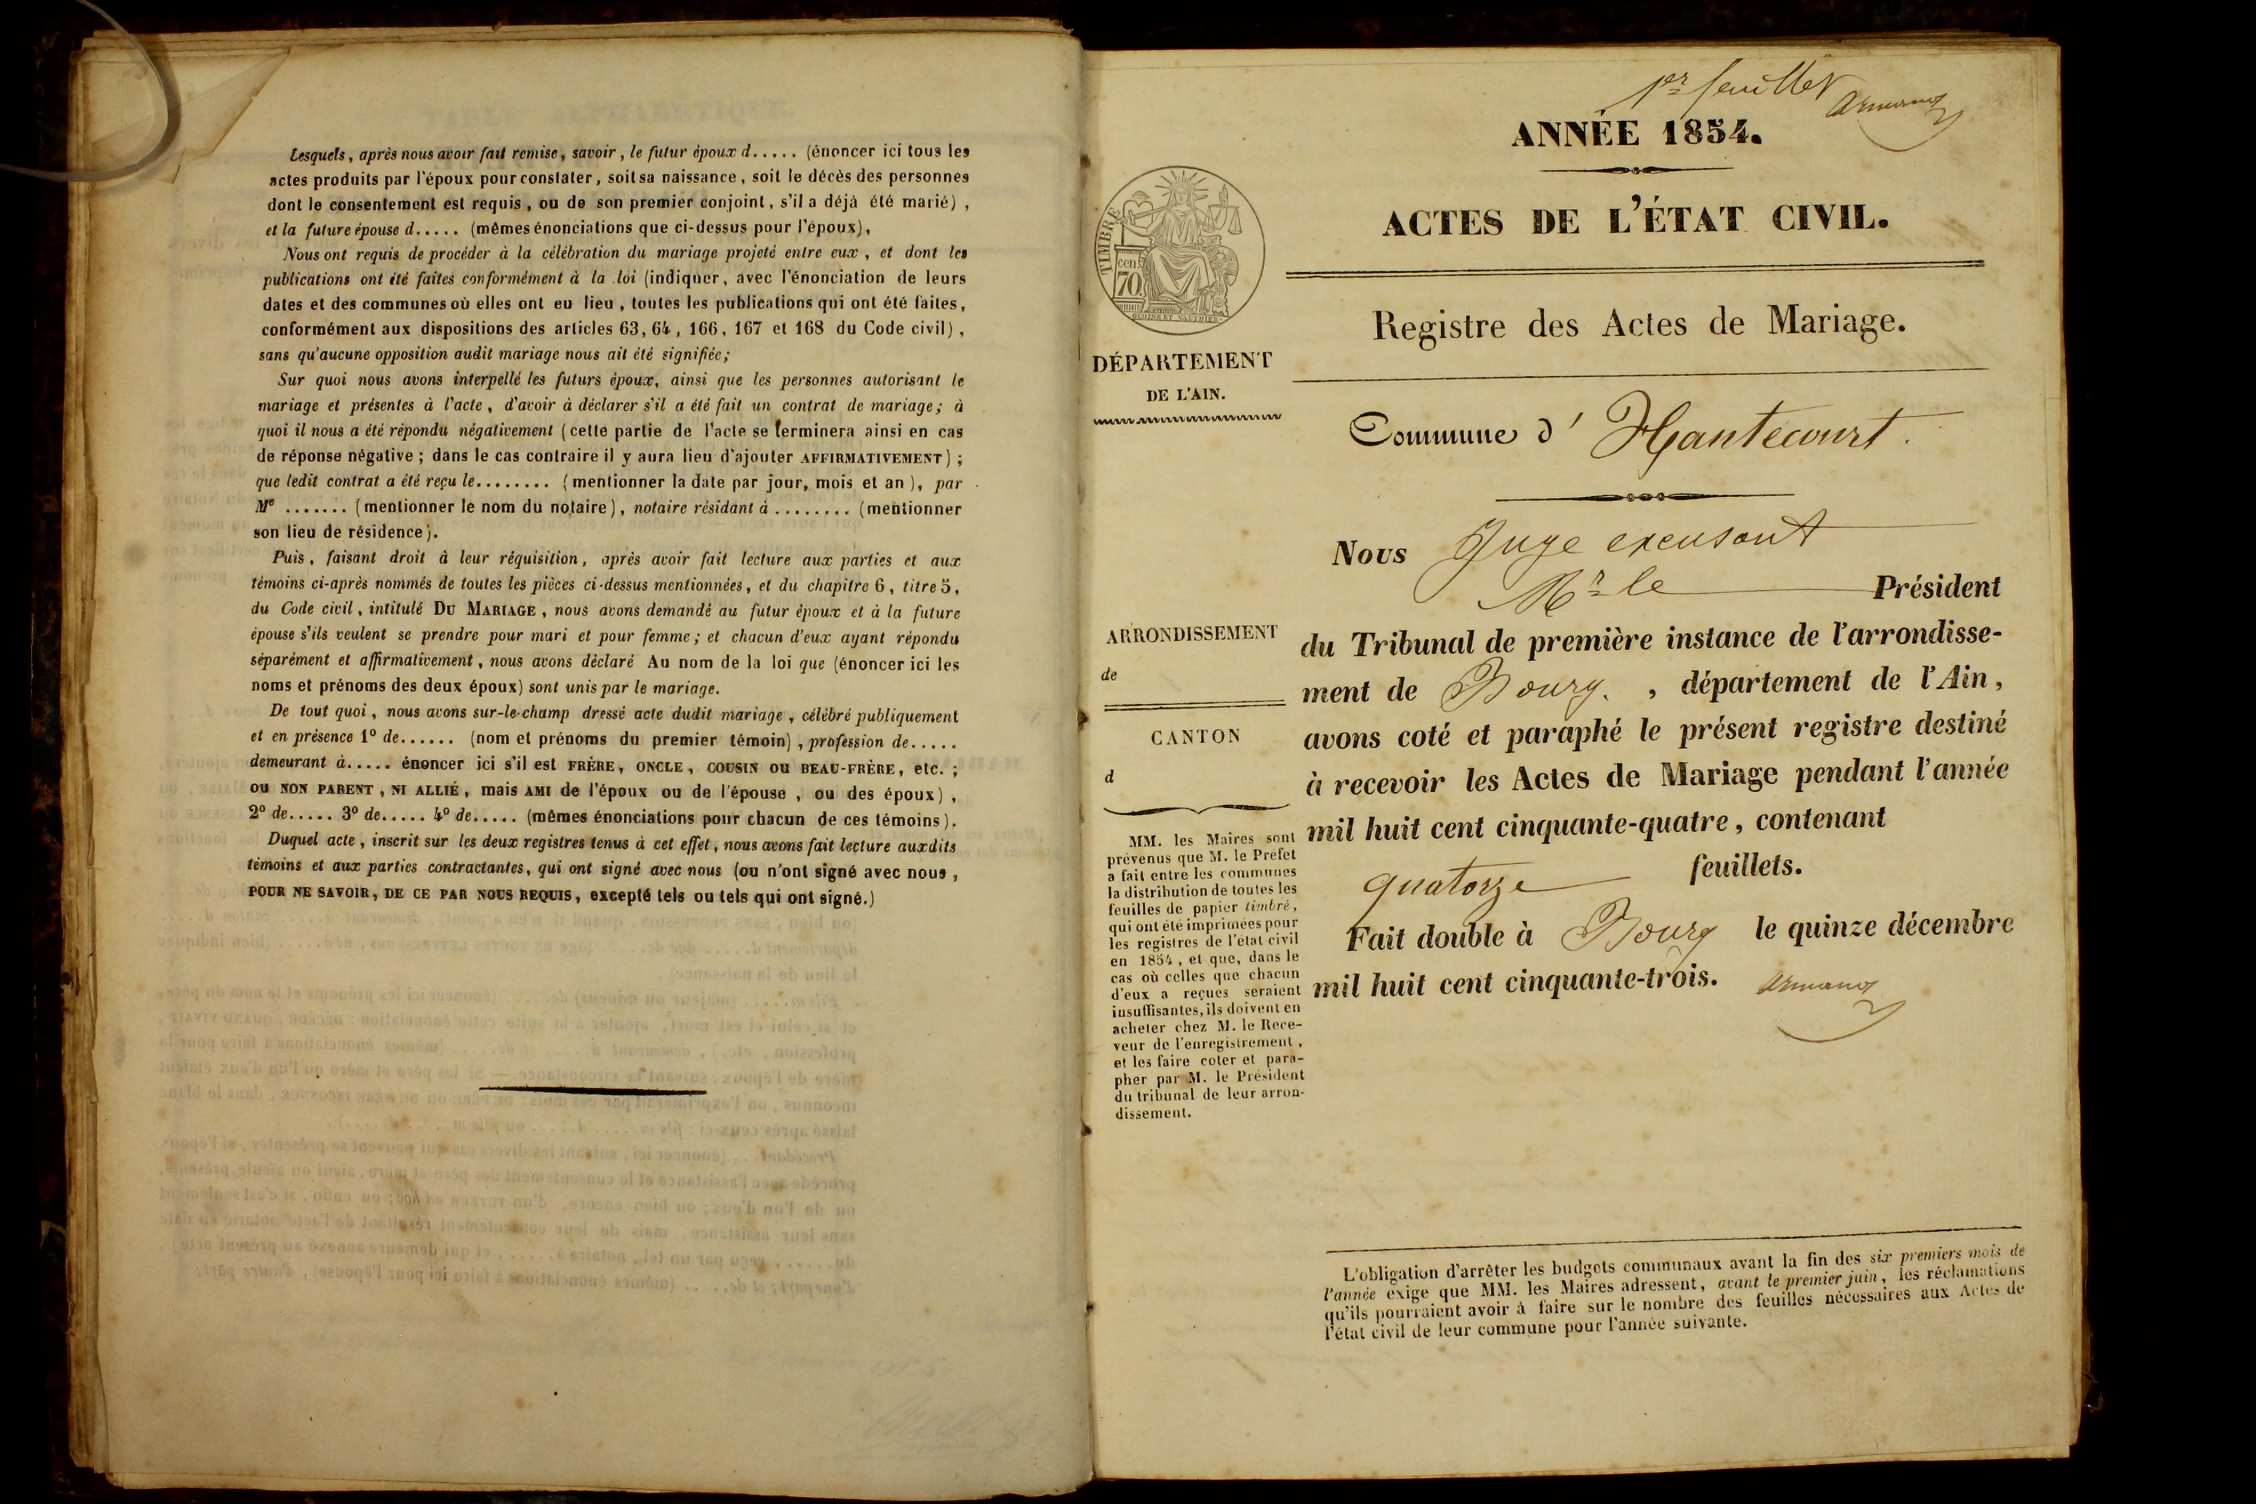 Lesquels, après nous avoir fait remise, savoir, le futur époux d..... (énoncer ici tous les
actes produits par l'époux pour constater, soit sa naissance, soit le décès des personnes
dont le consentement est requis, ou de son premier conjoint, s'il a déjà été marié),
et la future épouse d..... (mêmes énonciations que ci-dessus pour l'époux),
Nous ont requis de procéder à la célébration du mariage projeté entre eux, et dont les
publications ont été faites conformément à la loi (indiquer, avec l'énonciation de leurs
dates et des communes où elles ont eu lieu, toutes les publications qui ont été faites,
conformément aux dispositions des articles 63, 64, 166, 167 et 168 du Code civil),
sans qu'aucune opposition audit mariage nous ait été signifiée;
Sur quoi nous avons interpellé les futurs époux, ainsi que les personnes autorisant le
mariage et présentes à l'acte, d'avoir à déclarer s'il a été fait un contrat de mariage; à
quoi il nous a été répondu négativement (cette partie de l'acte se terminera ainsi en cas
de réponse négative; dans le cas contraire il y aura lieu d'ajouter AFFIRMATIVEMENT);
que ledit contrat a été reçu le........ (mentionner la date par jour, mois et an), par
Me ....... (mentionner le nom du notaire), notaire résidant à ........ (mentionner
son lieu de résidence).
Puis, faisant droit à leur réquisition, après avoir fait lecture aux parties et aux
témoins ci-après nommés de toutes les pièces ci-dessus mentionnées, et du chapitre 6, titre 5,
du Code civil, intitulé DU MARIAGE, nous avons demandé au futur époux et à la future
épouse s'ils veulent se prendre pour mari et pour femme; et chacun d'eux ayant répondu
séparément et affirmativement, nous avons déclaré Au nom de la loi que (énoncer ici les
noms et prénoms des deux époux) sont unis par le mariage.
De tout quoi, nous avons sur-le-champ dressé acte dudit mariage, célébré publiquement
et en présence 1º de...... (nom et prénoms du premier témoin), profession de.....
demeurant à..... énoncer ici s'il est FRÈRE, ONCLE, COUSIN OU BEAU-FRÈRE, etc.;
ou NON PARENT, NI ALLIÉ, mais AMI de l'époux ou de l'épouse, ou des époux),
2º de..... 3º de..... 4º de..... (mêmes énonciations pour chacun de ces témoins).
Duquel acte, inscrit sur les deux registres tenus à cet effet, nous avons fait lecture auxdits
témoins et aux parties contractantes, qui ont signé avec nous (ou n'ont signé avec nous,
POUR NE SAVOIR, DE CE PAR NOUS REQUIS, excepté tels ou tels qui ont signé.)
1er feuillet
Armand
ANNÉE 1854.
ACTES DE L'ÉTAT CIVIL.
TIMBRE
cen.
70
Registre des Actes de Mariage.
DÉPARTEMENT
DE L'AIN.
Commune d' Hautecourt.
Nous Juge excusant
Mr le Président
ARRONDISSEMENT
de
CANTON
d
du Tribunal de première instance de l'arrondisse-
ment de Bourg. , département de l'Ain,
avons coté et paraphé le présent registre destiné
à recevoir les Actes de Mariage pendant l'année
mil huit cent cinquante-quatre, contenant
quatorze feuillets.
Fait double à Bourg le quinze décembre
mil huit cent cinquante-trois. Armand
MM. les Maires sont
prévenus que M. le Préfet
a fait entre les communes
la distribution de toutes les
feuilles de papier timbré,
qui ont été imprimées pour
les registres de l'état civil
en 1854, et que, dans le
cas où celles que chacun
d'eux a reçues seraient
insuffisantes, ils doivent en
acheter chez M. le Rece-
veur de l'enregistrement,
et les faire coter et para-
pher par M. le Président
du tribunal de leur arron-
dissement.
L'obligation d'arrêter les budgets communaux avant la fin des six premiers mois de
l'année exige que MM. les Maires adressent, avant le premier juin, les réclamations
qu'ils pourraient avoir à faire sur le nombre des feuilles nécessaires aux Actes de
l'état civil de leur commune pour l'année suivante.